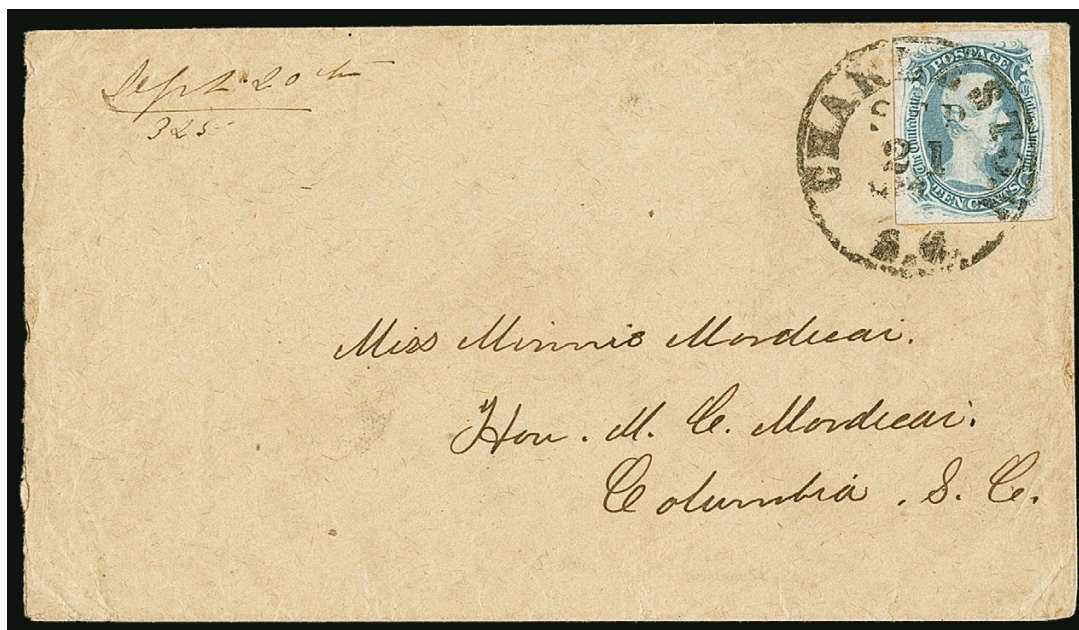 Sept. 20th
325
CHARLESTON
SEP
21
S.C.
POSTAGE
The Confederate States of America
TEN CENTS
Miss Minnie Mordecai.
Hon. M. C. Mordecai.
Columbia. S. C.